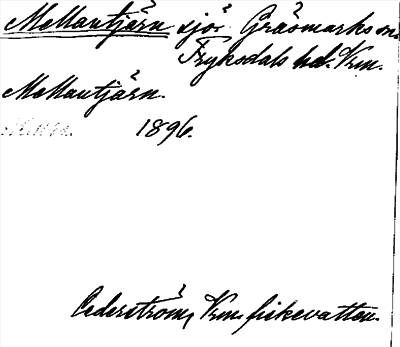 Mellantjärn sjö. Gräsmarks sn.
Fryksdals hd. Vrm.
Mellantjärn.
1896.
Cederström, Vrm. fiskevatten.